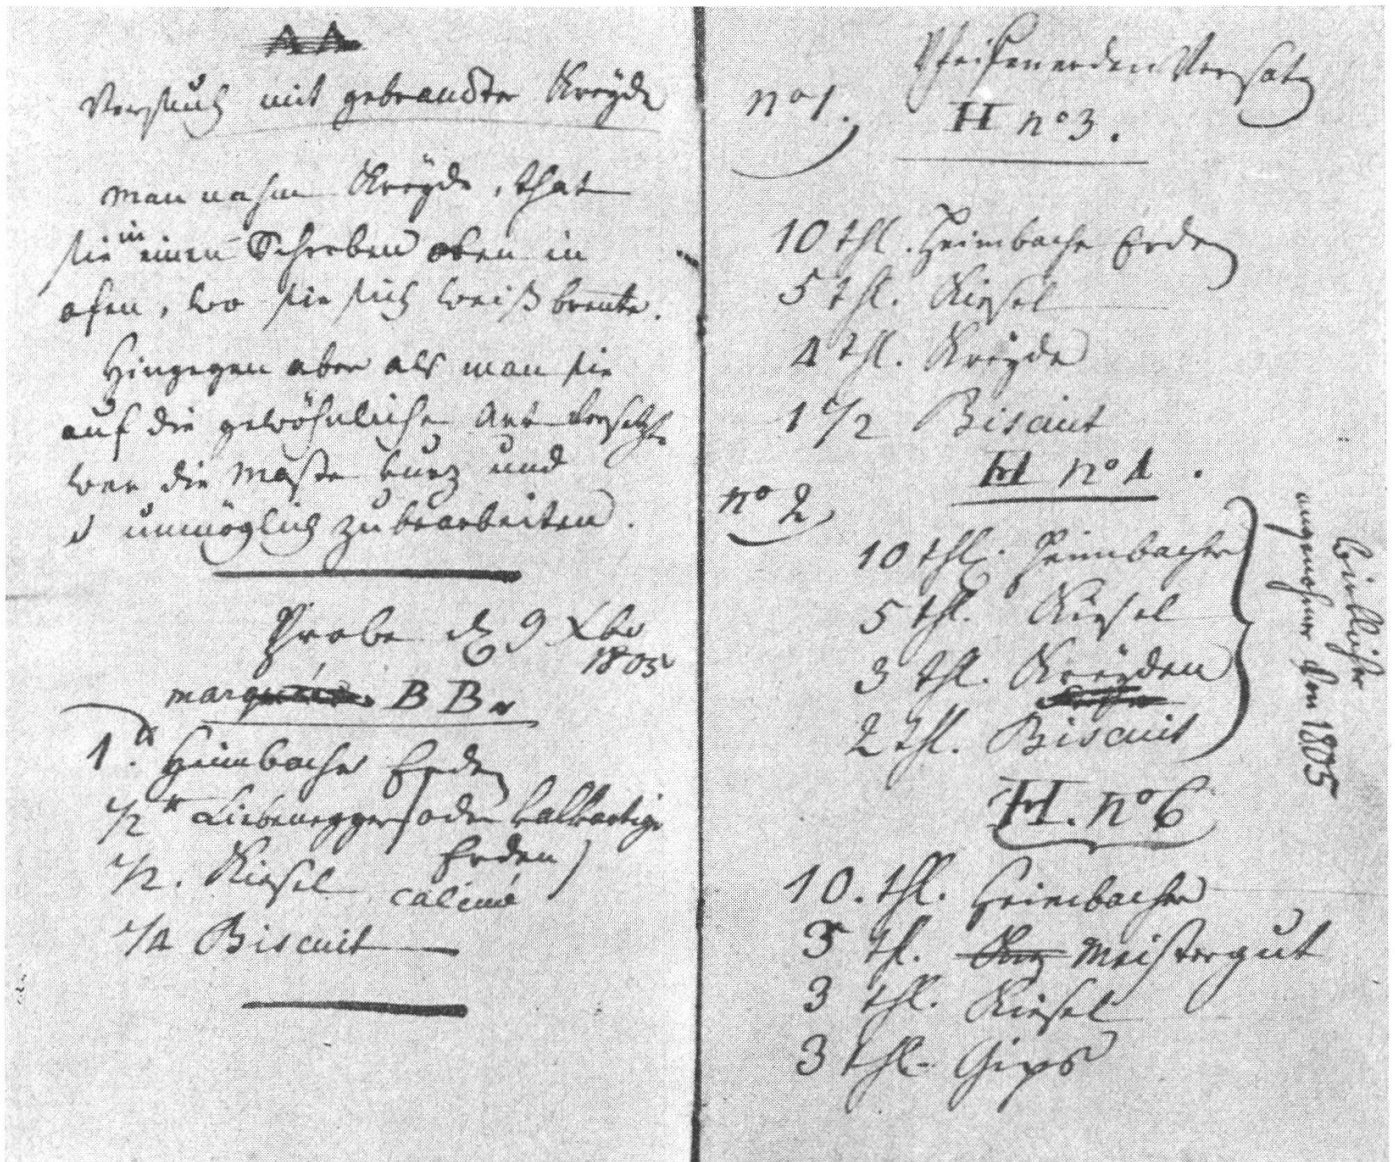 AA
Versuch mit gebrandter Kreÿde
man nahm Kreÿde, that
sie in einen Scherben oben in
ofen, wo sie sich weiß brente.
Hingegen aber als man sie
auf die gewöhnliche Art versetzte
war die Masse kurz und
unmöglich zu bearbeiten.
Probe d 9 Xbr
1805
marquirt BB.
1. Heimbacher Erden
1/2 Liebenegger (oder kalkartige
Erden)
1/2. Kiesel calciné
1/4 Biscuit
Pfeifenerden Versatz
n° 1.
H n° 3.
10 thl. Heimbacher Erden
5 thl. Kiesel
4 thl. Kreÿde
1 1/2 Biscuit
n° 2
H n° 4.
10 thl. Heimbacher
5 thl. Kiesel
3 thl. Kreÿden
2 thl. Biscuit
angenohmen den 1805
H. n° 6
10. thl. Heimbacher
3 thl. Meistergut
3 thl. Kiesel
3 thl. Gips